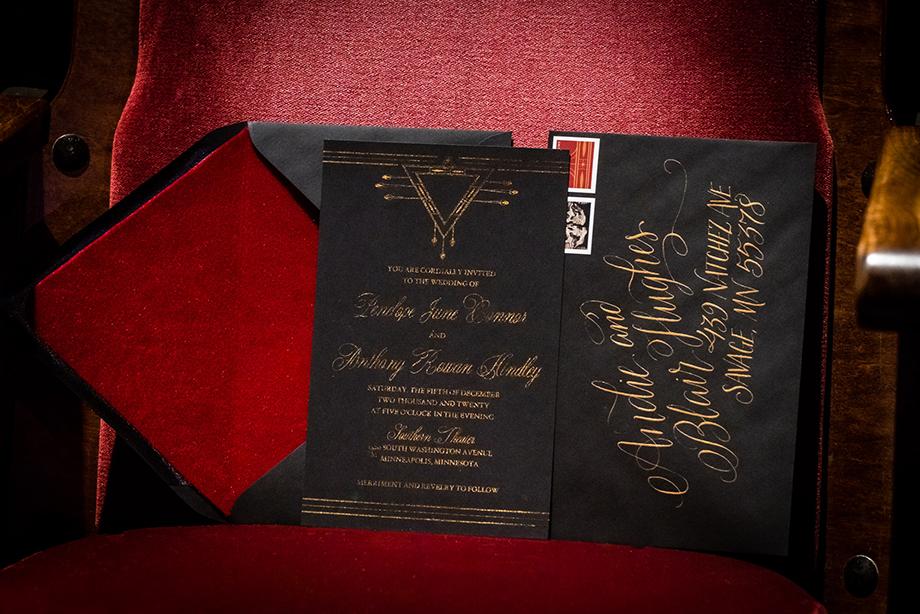 YOU ARE CORDIALLY INVITED
TO THE WEDDING OF
Penelope June Connor
AND
Anthony Rowan Hindley
SATURDAY, THE FIFTH OF DECEMBER
TWO THOUSAND AND TWENTY
AT FIVE O'CLOCK IN THE EVENING
Southern Theater
SOUTH WASHINGTON AVENUE
MINNEAPOLIS, MINNESOTA
MERRIMENT AND REVELRY TO FOLLOW
Andie and
Blair Hughes
439 NATCHEZ AVE
SAVAGE, MN 55378